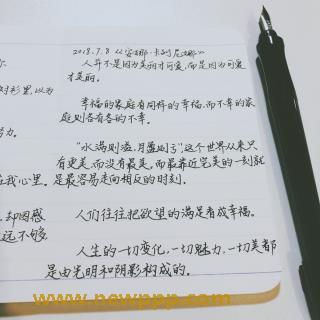 2018.7.8 《安娜·卡列尼娜》
人并不是因为美丽才可爱,而是因为可爱
才美丽。
幸福的家庭有同样的幸福,而不幸的家
庭则各有各的不幸。
"水满则溢,月盈则亏",这个世界从来只
有更美,而没有最美。而最靠近完美的一刻就
是最容易走向相反的时刻。
人们往往把欲望的满足看成幸福。
人生的一切变化,一切魅力,一切美都
是由光明和阴影构成的。
时形里,以为
努力。
在我心里。
却因感
远不够
www.newppp.com